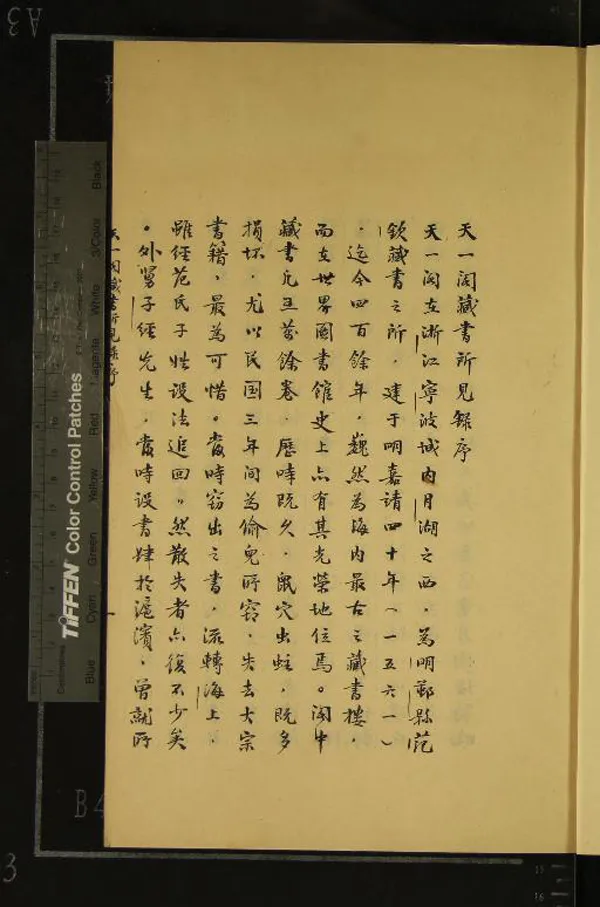 天一阁藏书所見錄序
天一阁在浙江寧波城内月湖之西，為明鄞縣范
欽藏書之所，建于明嘉靖四十年（一五六一）
，迄今四百餘年，巍然為海内最古之藏書樓，
而在世界圖書館史上亦有其光榮地位焉。阁中
藏書凡五萬餘卷，歷時既久，鼠穴虫蛀，既多
損坏，尤以民国三年间為偷兒所窃，失去大宗
書籍，最為可惜。當時窃出之書，流轉海上，
雖經范氏子姓設法追回。然散失者亦復不少矣
。外舅子經先生，當時設書肆於滬濱，曾就所
天一阁藏書所見錄序
TIFFEN Color Control Patches
Blue
Cyan
Green
Yellow
Red
Magenta
White
3/Color
Black
A3
B4
3